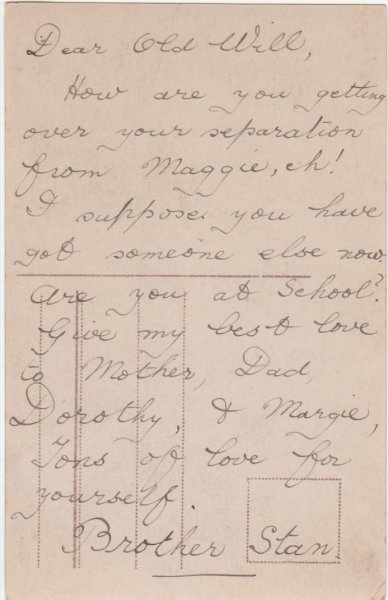 Dear Old Will,
How are you getting
over your separation
from Maggie, eh!
I suppose you have
got someone else now.
Are you at School?
Give my best love
to Mother, Dad,
Dorothy, & Margie,
Tons of love for
yourself.
Brother Stan.